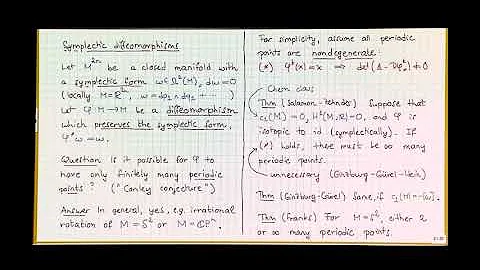 Symplectic diffeomorphisms
Let M²ⁿ be a closed manifold with
a symplectic form ω∈Ω²(M), dω=0
(locally M=ℝ²ⁿ, ω=dp₁∧dq₁+⋯)
Let φ: M→M be a diffeomorphism
which preserves the symplectic form,
φ*ω=ω.
Question Is it possible for φ to
have only finitely many periodic
points? ("Conley conjecture")
Answer In general, yes, e.g. irrational
rotation of M=S² or M=ℂPⁿ.
For simplicity, assume all periodic
points are nondegenerate:
⇒ det
Chern class
Thm (Salamon-Zehnder) Suppose that
c₁(M)=0, and φ is
isotopic to id (symplectically). If
(*) holds, there must be ∞ many
periodic points.
unnecessary (Ginzburg-Gürel-Hein)
Thm (Ginzburg-Gürel) Same, if
Thm (Franks) For M=S², either 2
or ∞ many periodic points.